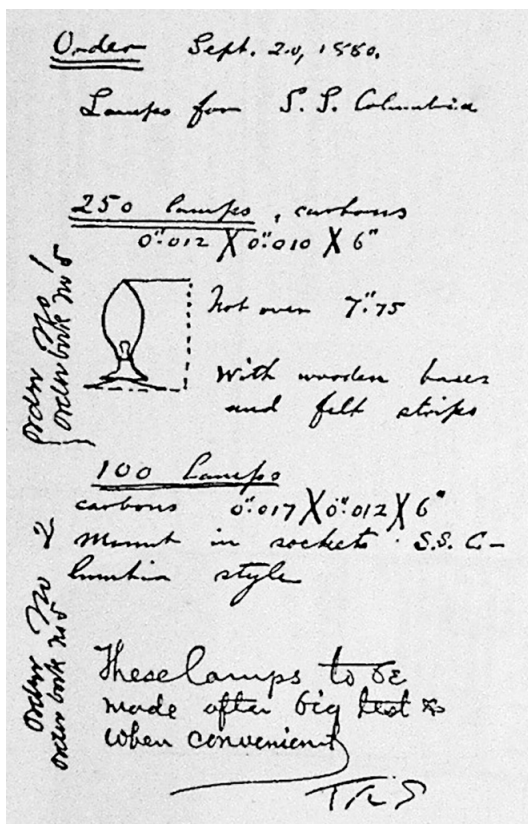 Order Sept. 20, 1880.
Lamps for S. S. Columbia
250 lamps, carbons
0".012 X 0".010 X 6"
Not over 7".75
With wooden bases
and felt strips
Order No 1
order book no 5
100 lamps
carbons 0".017 X 0".012 X 6"
Mount in sockets S.S. Co-
lumbia style
Order No 2
order book no 5
These lamps to be
made after big test &
when convenient